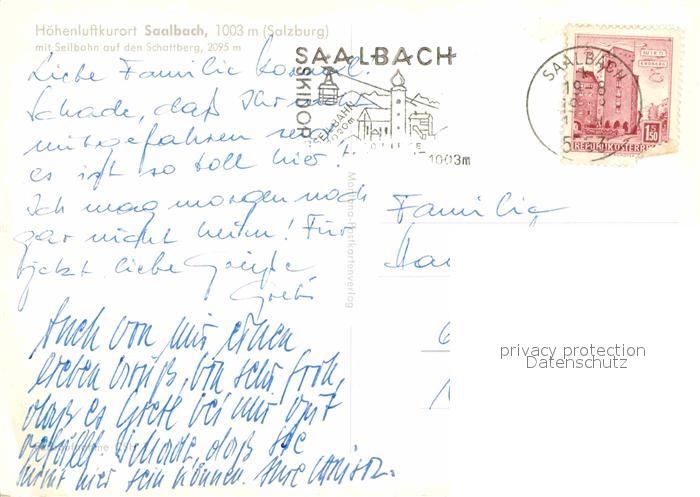 Höhenluftkurort Saalbach, 1003 m (Salzburg)
mit Seilbahn auf den Schattberg, 2095 m
Liebe Familie
Schade, daß Ihr
mitgefahren
es ist so toll hier!
Ich mag morgen noch
gar nicht heim! Für
jetzt liebe Grüße
Grete
Auch von mir einen
lieben Gruß, bin sehr froh,
daß es Grete bei mir gut
gefällt. Schade, daß Sie
nicht hier sein können. Ihre
SAALBACH
SKIDORF
SEILBAHN
1003m
SAALBACH
WIEN
ERDBERG
S 1.50
REPUBLIK ÖSTERREICH
Familie
privacy protection
Datenschutz